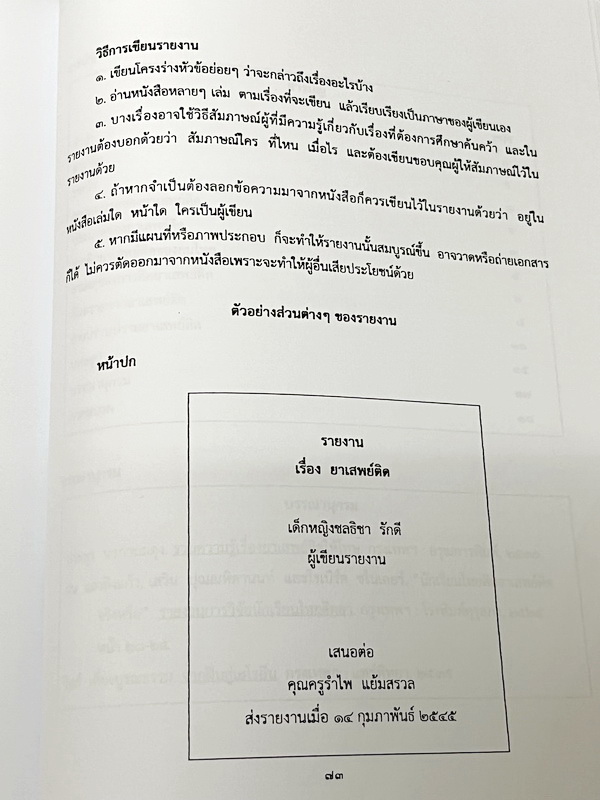 วิธีการเขียนรายงาน
๑. เขียนโครงร่างหัวข้อย่อยๆ ว่าจะกล่าวถึงเรื่องอะไรบ้าง
๒. อ่านหนังสือหลายๆ เล่ม ตามเรื่องที่จะเขียน แล้วเรียบเรียงเป็นภาษาของผู้เขียนเอง
๓. บางเรื่องอาจใช้วิธีสัมภาษณ์ผู้ที่มีความรู้เกี่ยวกับเรื่องที่ต้องการศึกษาค้นคว้า และใน
รายงานต้องบอกด้วยว่า สัมภาษณ์ใคร ที่ไหน เมื่อไร และต้องเขียนขอบคุณผู้ให้สัมภาษณ์ไว้ใน
รายงานด้วย
๔. ถ้าหากจำเป็นต้องลอกข้อความมาจากหนังสือก็ควรเขียนไว้ในรายงานด้วยว่า อยู่ใน
หนังสือเล่มใด หน้าใด ใครเป็นผู้เขียน
๕. หากมีแผนที่หรือภาพประกอบ ก็จะทำให้รายงานนั้นสมบูรณ์ขึ้น อาจวาดหรือถ่ายเอกสาร
ก็ได้ ไม่ควรตัดออกมาจากหนังสือเพราะจะทำให้ผู้อื่นเสียประโยชน์ด้วย
ตัวอย่างส่วนต่างๆ ของรายงาน
หน้าปก
รายงาน
เรื่อง ยาเสพย์ติด
เด็กหญิงชลธิชา รักดี
ผู้เขียนรายงาน
เสนอต่อ
คุณครูรำไพ แย้มสรวล
ส่งรายงานเมื่อ ๑๔ กุมภาพันธ์ ๒๕๔๕
๗๓